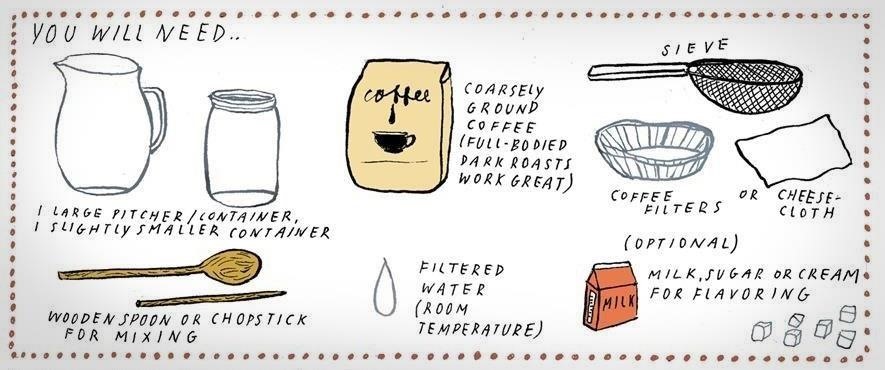 YOU WILL NEED..
1 LARGE PITCHER/CONTAINER,
1 SLIGHTLY SMALLER CONTAINER
coffee
COARSELY
GROUND
COFFEE
(FULL-BODIED
DARK ROASTS
WORK GREAT)
SIEVE
COFFEE
FILTERS
OR
CHEESE-
CLOTH
WOODEN SPOON OR CHOPSTICK
FOR MIXING
FILTERED
WATER
(ROOM
TEMPERATURE)
(OPTIONAL)
MILK
MILK, SUGAR OR CREAM
FOR FLAVORING